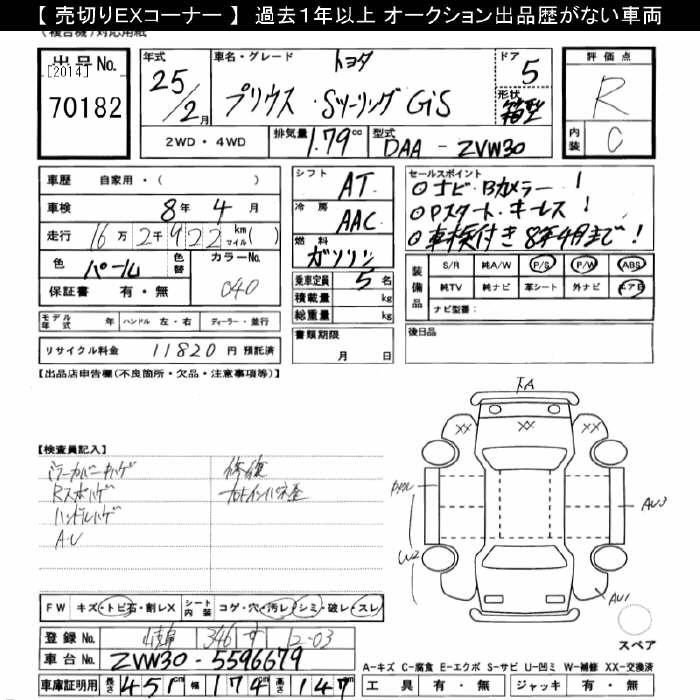 【 売切りEXコーナー 】 過去１年以上 オークション出品歴がない車両
出品No.
[2014]
70182
年式
25/2月
車名・グレード
トヨタ
プリウス・Sツーリング G'S
ドア
5
形状
箱型
評価点
R
内装
C
2WD・4WD
排気量 1.79cc
型式 DAA - ZVW30
車歴 自家用・( )
車検 8年 4月
走行 16万2千922 km マイル( )
色 パール
色替
カラーNo. 040
保証書 有・無
シフト AT
冷房 AAC
燃料 ガソリン
乗車定員 5名
積載量 kg
総重量 kg
セールスポイント
◎ナビ・Bカメラー!
◎Pスタート・キーレス!
◎車検付き8年4月まで!
装備品
S/R 純A/W P/S P/W ABS
純TV 純ナビ 革シート 外ナビ エアB
ナビ型番:
モデル年式 年 ハンドル 左・右 ディーラー・並行
リサイクル料金 11820 円 預託済
書類期限
月 日
後日品
【出品店申告欄(不良箇所・欠品・注意事項等)】
【検査員記入】
ミラーカバーキハゲ 修復
Rスポハゲ
ハンドルハゲ
A・U
XX XX XX
W2
AU3
AU1
FW キズ・トビ石・割レX
シート内装 コゲ・穴・汚レ・シミ・破レ・スレ
登録No. 346 す 12-03
車台No. ZVW30-5596679
車庫証明用 長さ 451cm 幅 174cm 高さ 147cm
スペア
A－キズ C－腐食 E－エクボ S－サビ U－凹ミ W－補修 XX－交換済
工具 有・無 ジャッキ 有・無